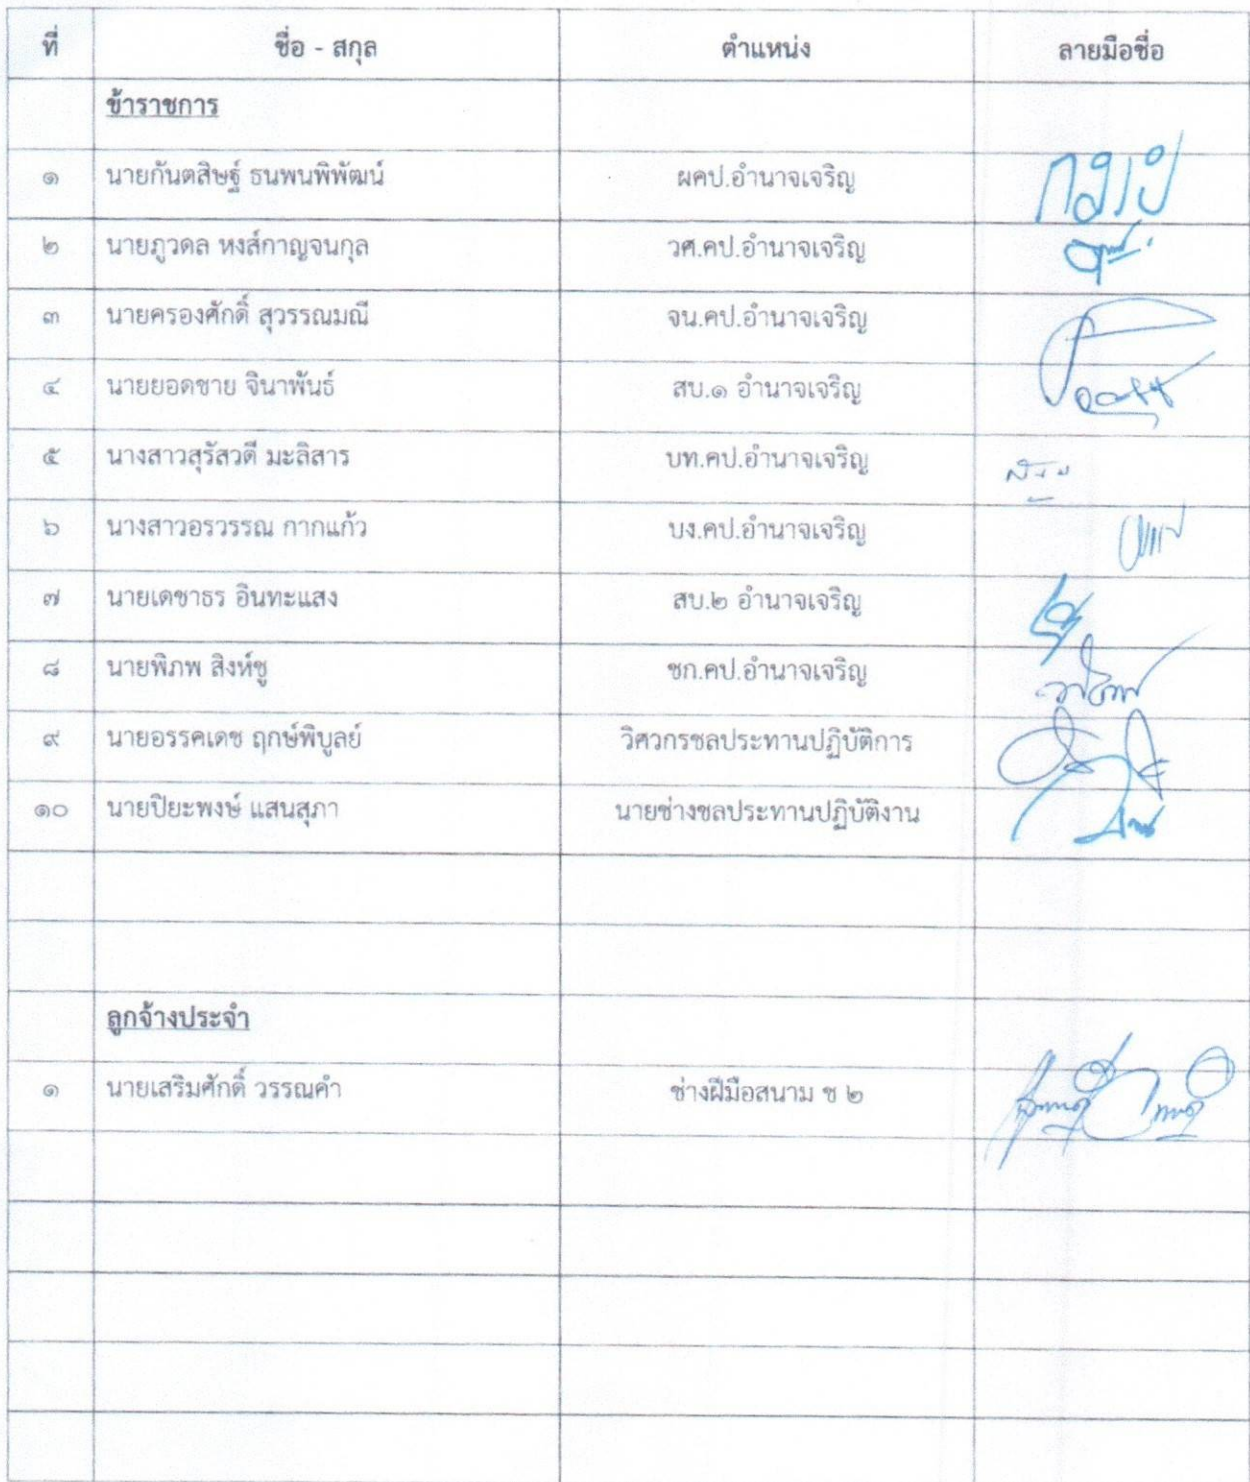 ที่ ชื่อ - สกุล ตำแหน่ง ลายมือชื่อ
ข้าราชการ
๑ นายกันตสิษฐ์ ธนพนพิพัฒน์ ผคป.อำนาจเจริญ
๒ นายภูวดล หงส์กาญจนกุล วศ.คป.อำนาจเจริญ
๓ นายครองศักดิ์ สุวรรณมณี จน.คป.อำนาจเจริญ
๔ นายยอดชาย จินาพันธ์ สบ.๑ อำนาจเจริญ
๕ นางสาวสุรัสวดี มะลิสาร บท.คป.อำนาจเจริญ
๖ นางสาวอรวรรณ กากแก้ว บง.คป.อำนาจเจริญ
๗ นายเดชาธร อินทะแสง สบ.๒ อำนาจเจริญ
๘ นายพิภพ สิงห์ชู ชก.คป.อำนาจเจริญ
๙ นายอรรคเดช ฤกษ์พิบูลย์ วิศวกรชลประทานปฏิบัติการ
๑๐ นายปิยะพงษ์ แสนสุภา นายช่างชลประทานปฏิบัติงาน
ลูกจ้างประจำ
๑ นายเสริมศักดิ์ วรรณคำ ช่างฝีมือสนาม ช ๒